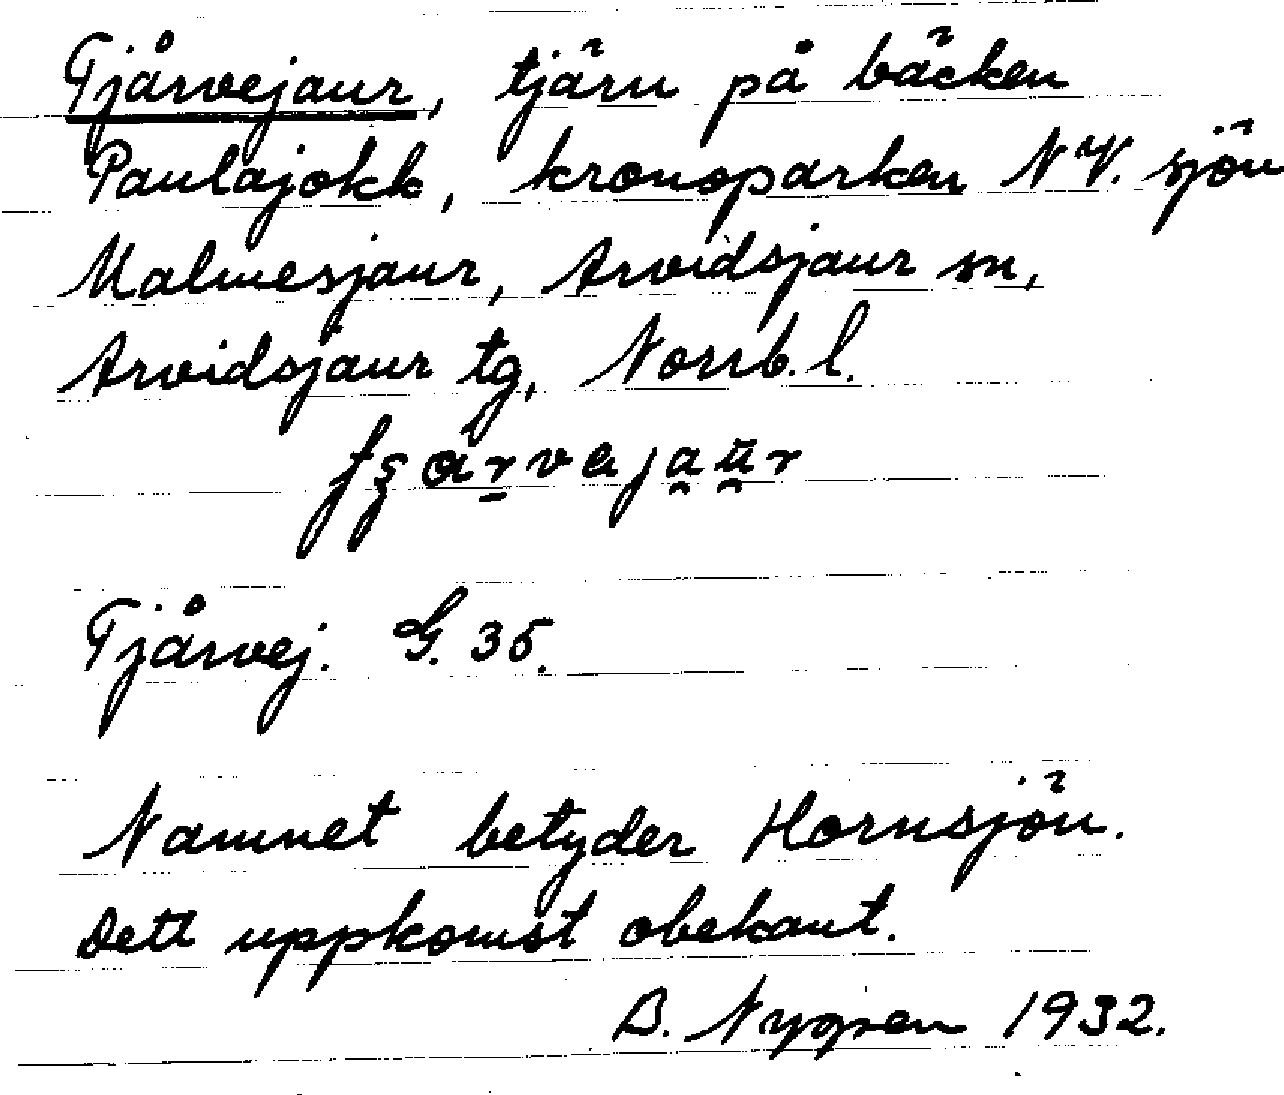 Tjårvejaur, tjärn på bäcken
Paulajokk, kronoparken NV. sjön
Malmesjaur, Arvidsjaur sn,
Arvidsjaur tg, Norrb. l.
Tjårvej. G. 35.
Namnet betyder Hornsjön.
Dett uppkomst obekant.
B. 1932.